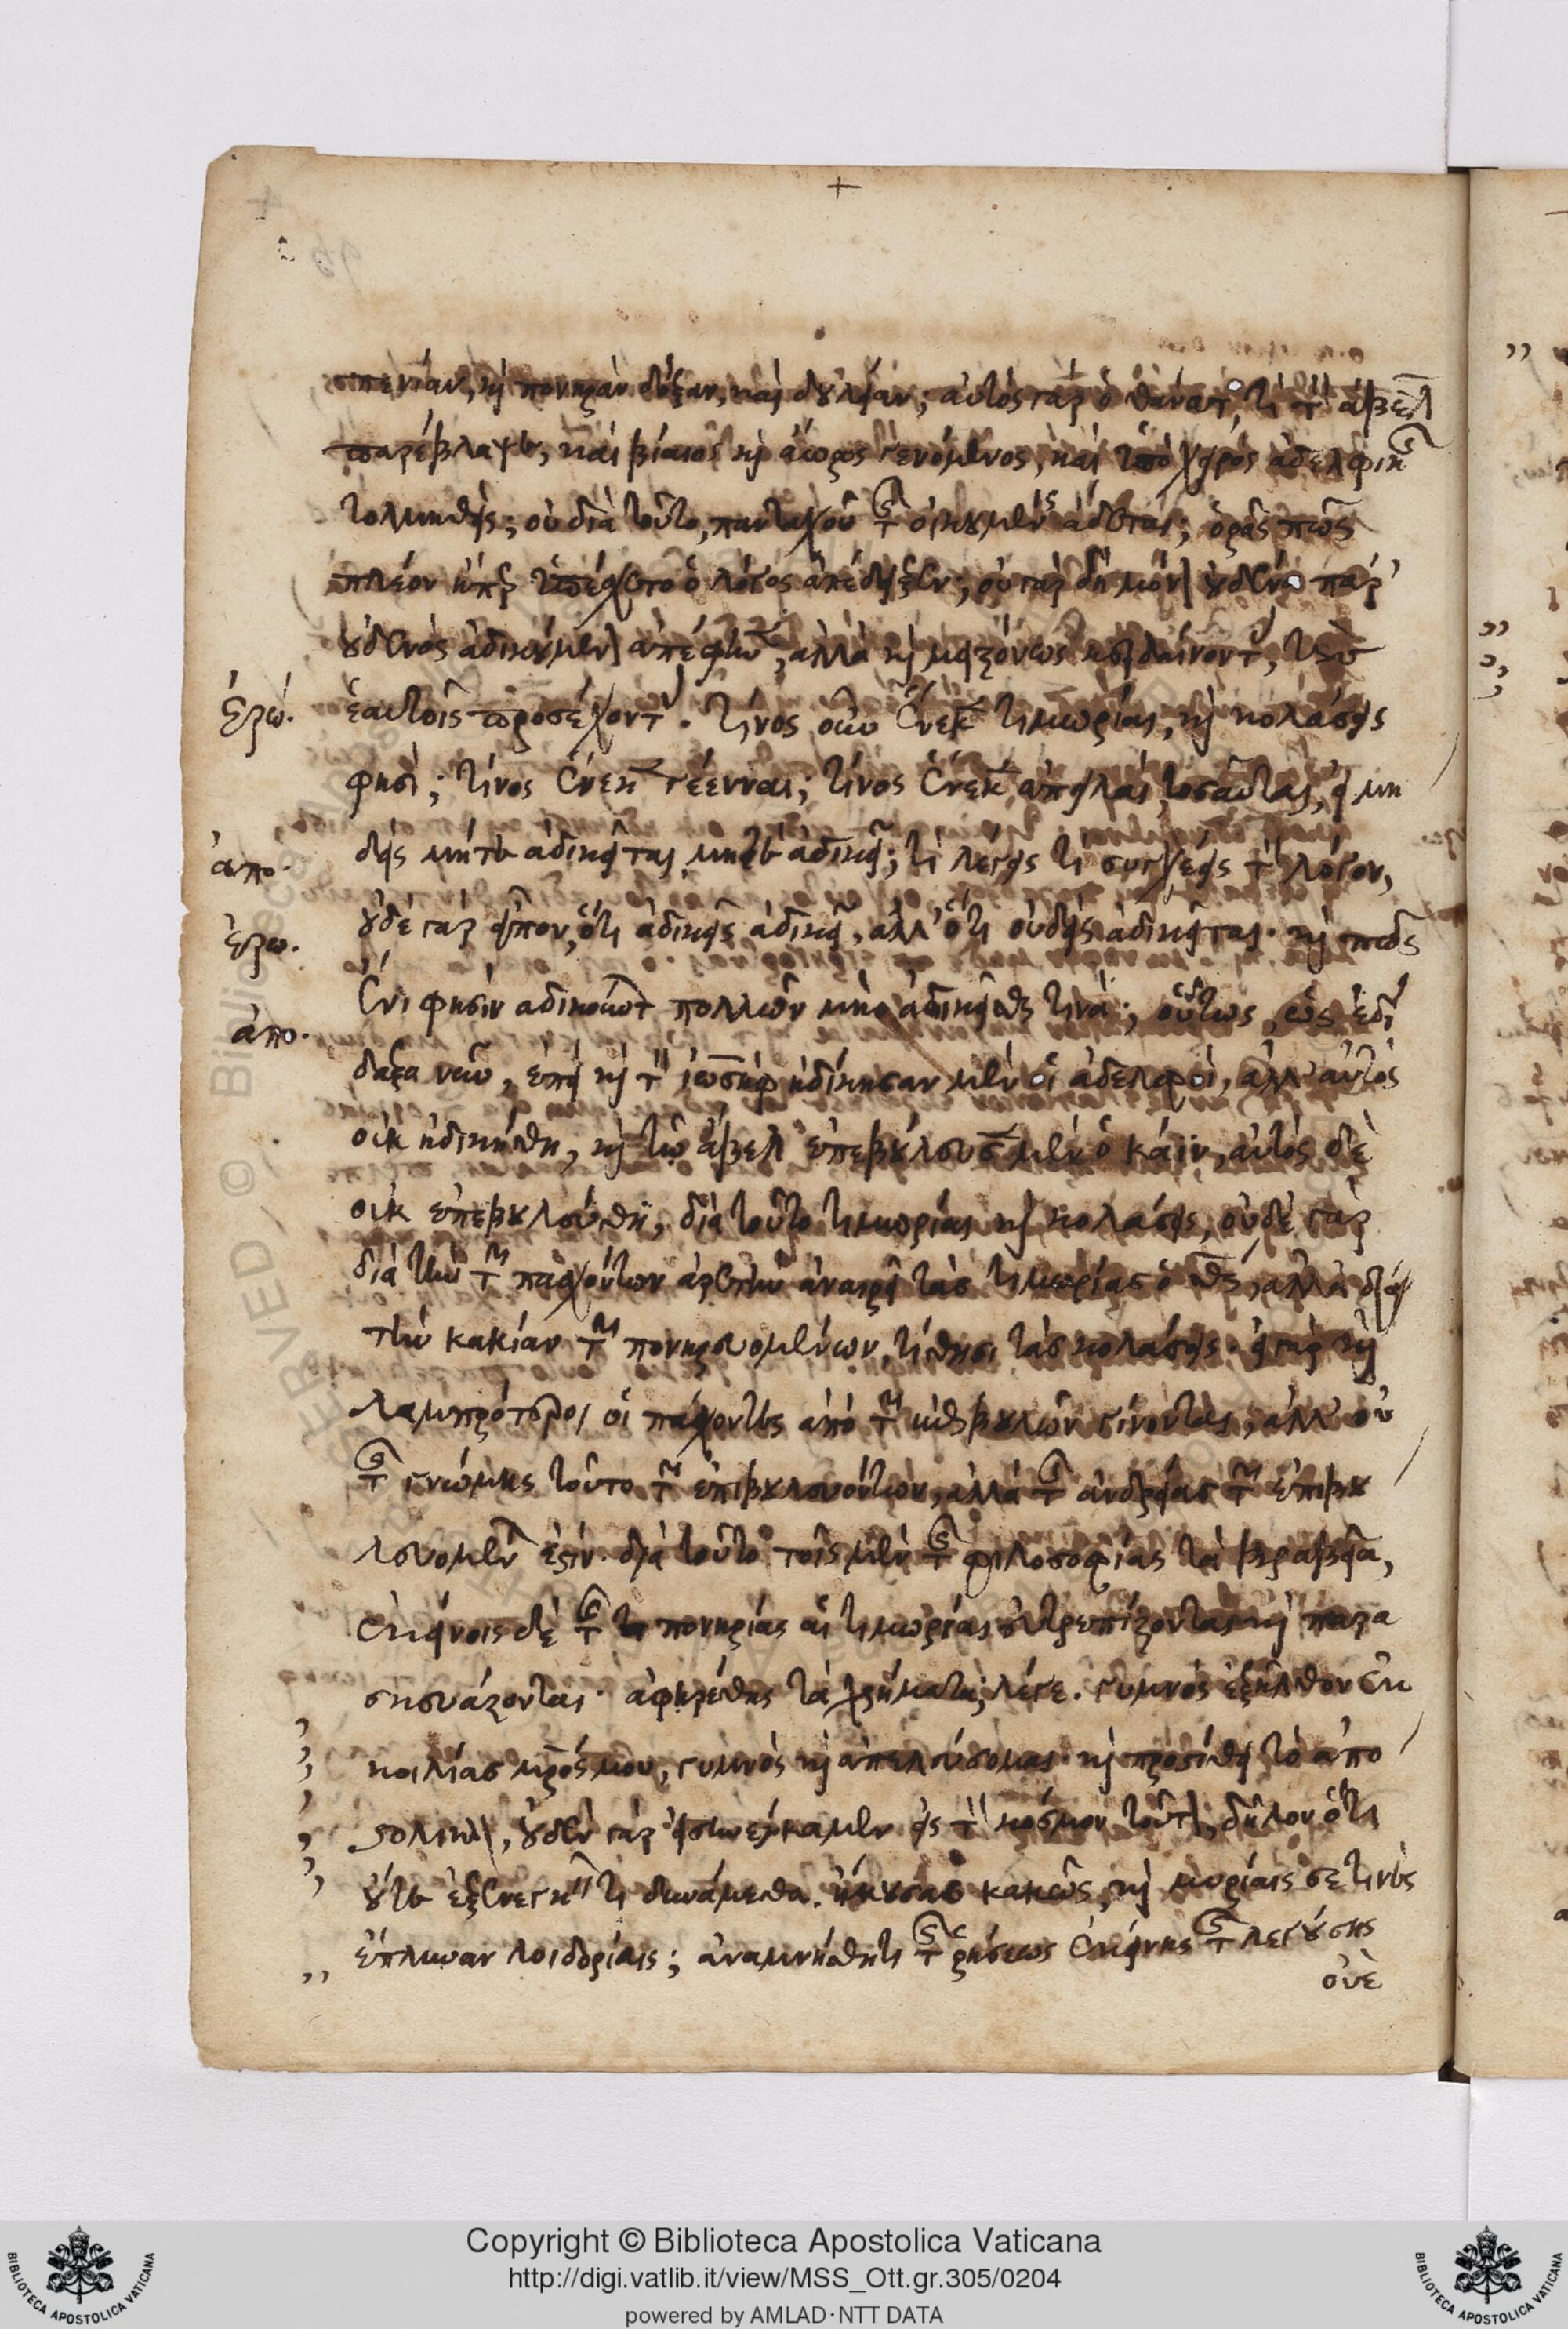 +
πενίαν, καὶ πονηρὰν δόξαν, καὶ δουλείαν; αὐτὸς γὰρ ὁ θάνατος τί τὸν ἄβελ
παρέβλαψε, καὶ βίαιος καὶ ἄωρος γενόμενος, καὶ ὑπὸ χειρὸς ἀδελφικῆς
τολμηθείς; οὐ διὰ τοῦτο, πανταχοῦ τῆς οἰκουμένης ἄδεται; ὁρᾶς πῶς
πλέον ἤπερ ὑπέσχετο ὁ λόγος ἀπέδειξεν; οὐ γὰρ δὴ μόνον οὐδένα παρ'
οὐδενὸς ἀδικούμενον ἀπέφηνεν, ἀλλὰ καὶ μειζόνως κερδαίνοντας, τοὺς
ἐρώ.
ἑαυτοῖς προσέχοντας. τίνος οὖν ἕνεκεν τιμωρίαι, καὶ κολάσεις
φησί; τίνος ἕνεκεν γέενναι; τίνος ἕνεκεν ἀπειλαὶ τοσαῦται, εἰ μη
ἀπο.
δεὶς μήτε ἀδικεῖται, μήτε ἀδικεῖ; τί λέγεις τί συγχέεις τὸν λόγον,
ἐρω.
οὐδὲ γὰρ εἶπον, ὅτι οὐδεὶς ἀδικεῖ, ἀλλ' ὅτι οὐδεὶς ἀδικεῖται. καὶ πῶς
ἀπο.
ἔνι φησὶν ἀδικούντων πολλῶν μὴ ἀδικεῖσθαί τινα; οὕτως, ὡς ἐδί
δαξα νῦν, ἐπεὶ καὶ τὸν ἰωσὴφ ἠδίκησαν μὲν οἱ ἀδελφοί, ἀλλ' αὐτὸς
οὐκ ἠδικήθη, καὶ τῷ ἄβελ ἐπεβούλευσε μὲν ὁ κάϊν, αὐτὸς δὲ
οὐκ ἐπεβουλεύθη, διὰ τοῦτο τιμωρίαι καὶ κολάσεις, οὐδὲ γὰρ
διὰ τὴν τῶν πασχόντων ἀρετὴν ἀναιρεῖ τὰς τιμωρίας ὁ θς, ἀλλὰ διὰ
τὴν κακίαν τῶν πονηρευομένων, τίθησι τὰς κολάσεις. εἰ γὰρ καὶ
λαμπρότεροι οἱ πάσχοντες ἀπὸ τῶν ἐπιβουλῶν γίνονται, ἀλλ' οὐ
τῆς γνώμης τοῦτο τῶν ἐπιβουλευόντων, ἀλλὰ τῆς ἀνδρείας τῶν ἐπιβου
λευομένων ἐστίν. διὰ τοῦτο τοῖς μὲν τῆς φιλοσοφίας τὰ βραβεῖα,
ἐκείνοις δὲ τῆς πονηρίας αἱ τιμωρίαι εὐτρεπίζονται καὶ παρα
σκευάζονται. ἀφῃρέθης τὰ χρήματα; λέγε. γυμνὸς ἐξῆλθον ἐκ
κοιλίας μρός μου, γυμνὸς καὶ ἀπελεύσομαι. καὶ προστίθει τὸ ἀπο
στολικὸν, οὐδὲν γὰρ εἰσηνέγκαμεν εἰς τὸν κόσμον τοῦτον, δῆλον ὅτι
οὔτε ἐξενεγκεῖν τι δυνάμεθα. ἤκουσας κακῶς, καὶ μυρίαις σέ τινες
ἔπλυναν λοιδορίαις; ἀναμνήσθητι τῆς ῥήσεως ἐκείνης τῆς λεγούσης
οὐὲ
Copyright © Biblioteca Apostolica Vaticana
http://digi.vatlib.it/view/MSS_Ott.gr.305/0204
powered by AMLAD·NTT DATA
BIBLIOTECA APOSTOLICA VATICANA
BIBLIOTECA APOSTOLICA VATICANA